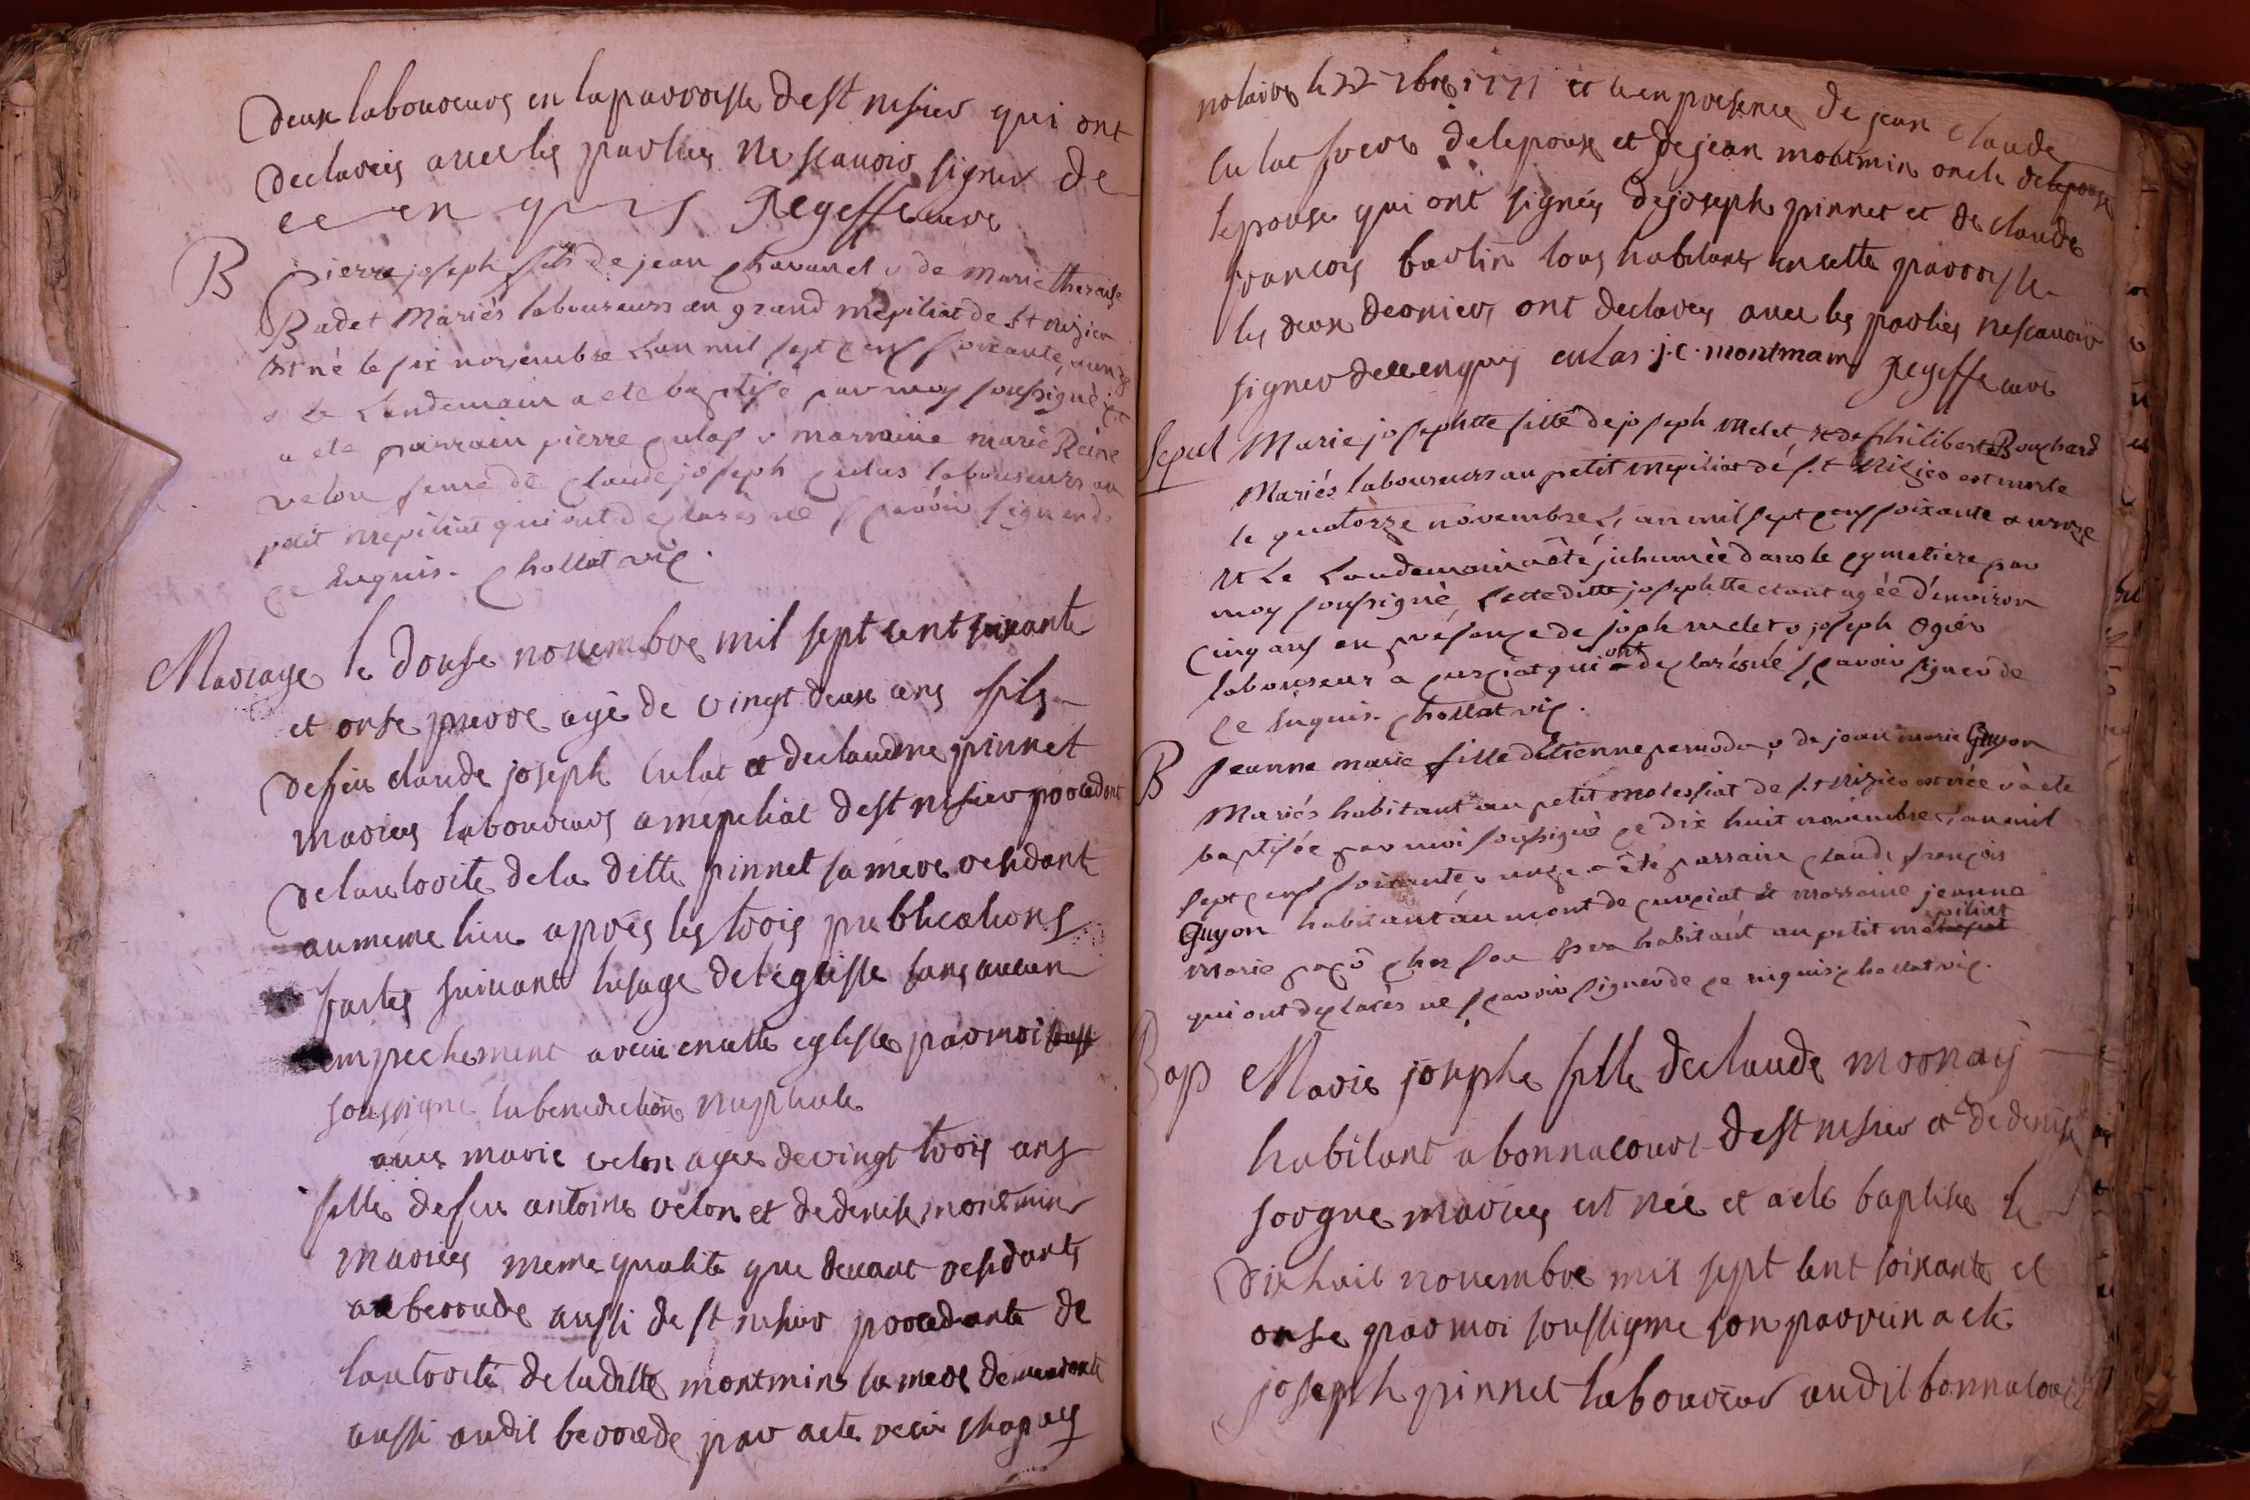 deux laboureurs en la parroisse de st nisier qui ont
declarés avec les parties ne scavoir signer de
ce enquis Regeffe curé
B Pierre joseph fils de jean chavanel & de Marie theraise
Badet Mariés laboureurs au grand mépiliat de St nizier
est né le six novembre L'an mil sept cens soixante & unze
& Le Landemain a eté baptisé par moy soussigné et
a eté parrain pierre culas & marraine marie Reine
velon feme de claude joseph culas laboureurs au
petit mepiliat qui ont declarés ne sçavoir signer de
ce Enquis. chollat vic.
Mariage le douse novembre mil sept cent soixante
et onse pierre agé de vingt deux ans fils
de feu claude joseph Culat et de claudine pinnet
mariés laboureurs a mepeliat de st nisier procedant
de l'autorité de la ditte pinnet sa mere residant
au meme lieu apres les trois publications
faites suivant lusage de léglisse sans aucun
empechement a recu en cette eglisse par moi
soussigné la benediction nuptiale
avec marie velon agée de vingt trois ans
fille de feu antoine velon et de denise montmin
mariés meme qualité que devant residants
au beroude aussi de st nisier procedante de
lautorité de laditte montmin sa mere demeurante
aussi audit beroude par acte recu chapuy
notaire le 22 7bre 1771 et ce en presence de jean claude
Culat frere de lepoux et de jean montmin oncle de lepouse
lepouse qui ont signés de joseph pinnet et de claude
francois bertin tous habitans en cette parroisse
les deux derniers ont declarés avec les parties ne scavoir
signer de ce enquis culas j.c. montmain Regeffe curé
Sepul Marie josephtte fille de joseph Melet, et de philiberte Bouchard
Mariés laboureurs au petit mepiliat dé s.t Nizier est morte
le quatorze novembre L'an mil sept cens soixante & unze
et Le Landemain a été inhumée dans le cymetiere par
moy soussigné, Laditte josephtte etant agée d'environ
cinq ans en présence de joseph melet & joseph ogier
laboureur a curciat qui ont declarés né sçavoir signer de
ce Enquis. chollat vic.
B Jeanne marie fille d'Etienne & de jean marie Guyon
Mariés habitant au petit de s.t nizier est née & a eté
baptisée par moi soussigné ce dix huit novembre L'an mil
sept cens soixante & unze a été parrain claude françois
Guyon habitant au mont de curciat et marraine jeanne
marie habitant au petit mépiliat
qui ont declarés ne sçavoir signer de ce enquis chollat vic.
Bap Marie josephe fille de claude mornay
habitant a bonnacourt de st nisier et de denise
sorgue mariés est née et a eté baptisée le
dix huit novembre mil sept cent soixante et
onse par moi soussigné son parrein a eté
joseph pinnet laboureur audit bonnacourt